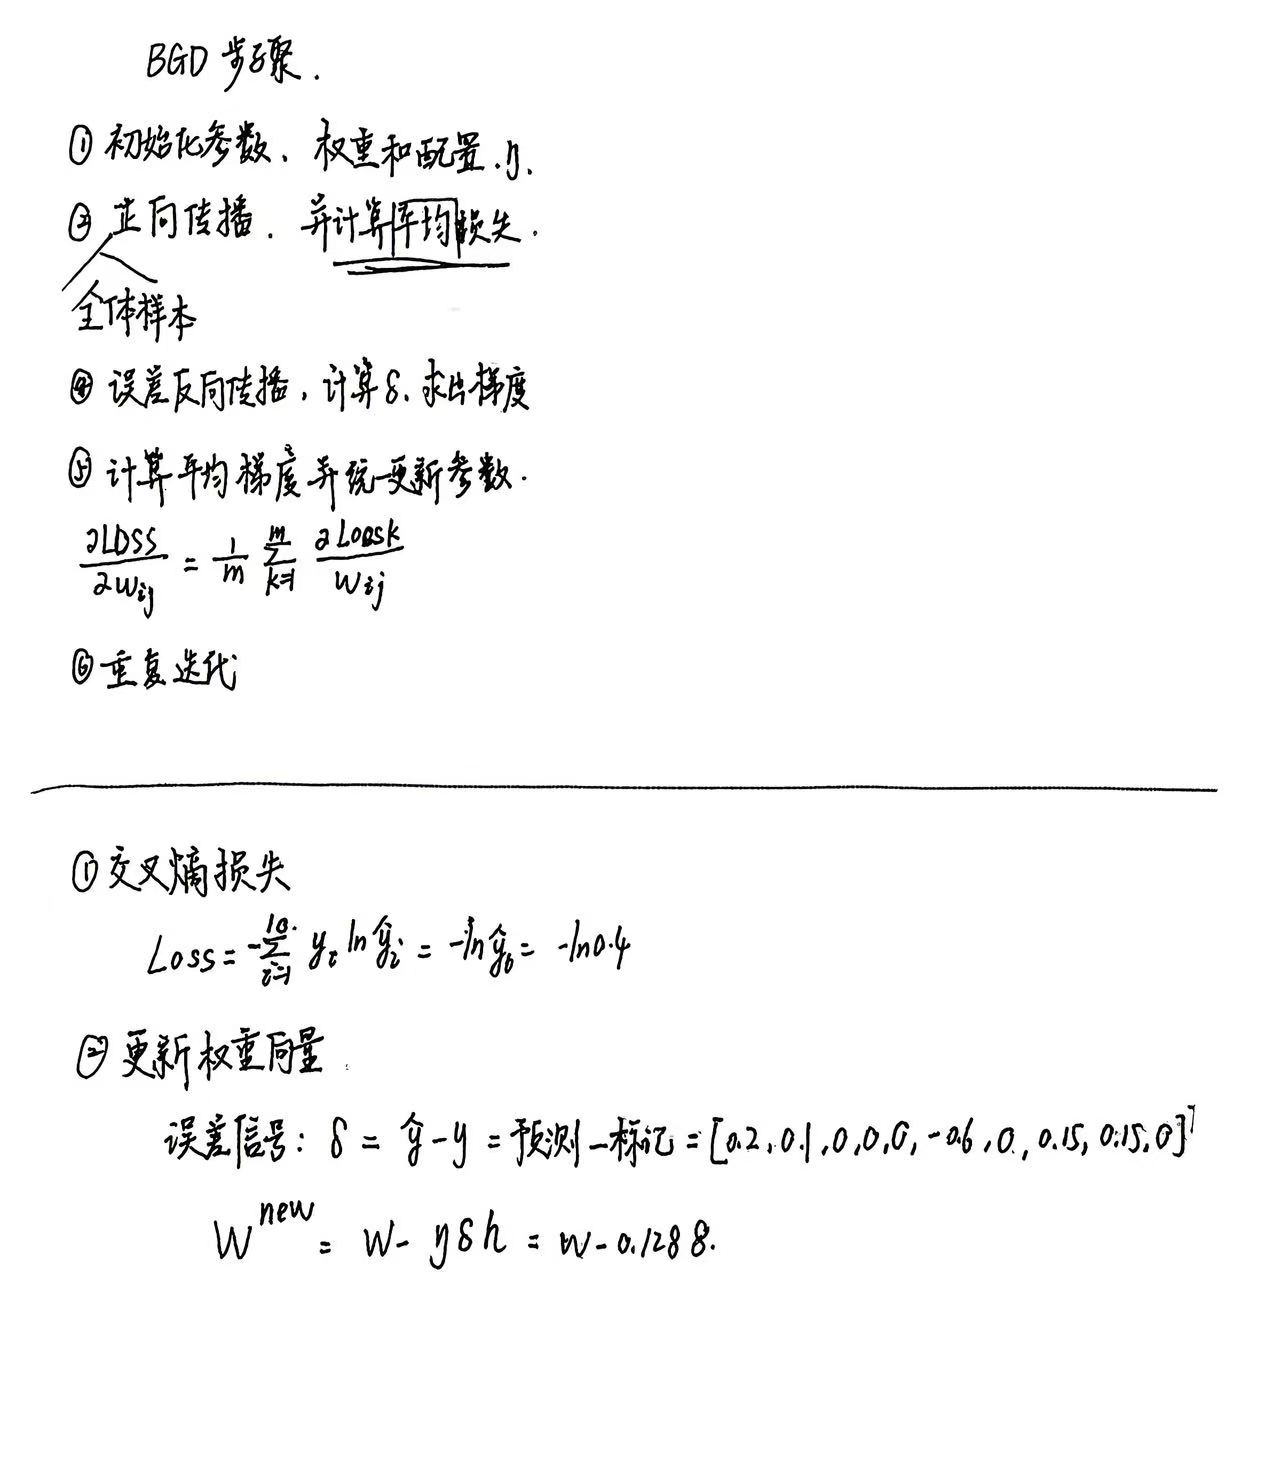 BGD 步骤.
① 初始化参数、权重和配置.η.
② 正向传播. 并计算平均损失.
全体样本
④ 误差反向传播,计算δ、求出梯度
⑤ 计算平均梯度并统一更新参数.
∂LOSS/∂wij = 1/m Σ(k=1→m) ∂Lossk/wij
⑥ 重复迭代
① 交叉熵损失
Loss = -Σ(i=1→10) yi ln ŷi = -ln ŷ6 = -ln0.4
② 更新权重向量
误差信号: δ = ŷ-y = 预测-标记 = [0.2, 0.1, 0, 0, 0, -0.6, 0, 0.15, 0.15, 0]ᵀ
W^new = W - ηδh = W - 0.128δ.